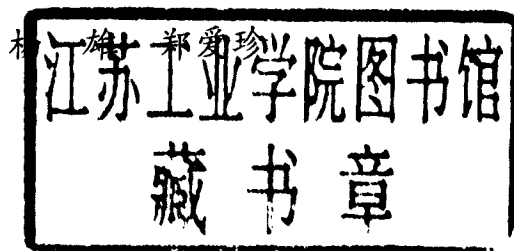 杨 雄 郑爱珍
江苏工业学院图书馆
藏书章